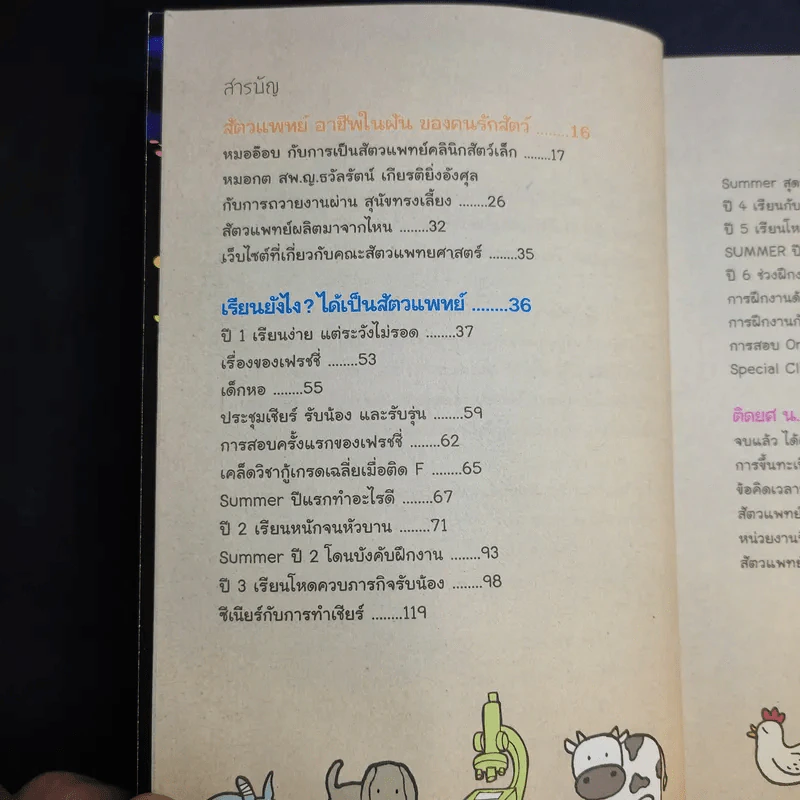 สารบัญ
สัตวแพทย์ อาชีพในฝัน ของคนรักสัตว์ ........16
หมออ๊อบ กับการเป็นสัตวแพทย์คลินิกสัตว์เล็ก ........17
หมอกต สพ.ญ.ธวัลรัตน์ เกียรติยิ่งอังศุล
กับการถวายงานผ่าน สุนัขทรงเลี้ยง ........26
สัตวแพทย์ผลิตมาจากไหน ........32
เว็บไซต์ที่เกี่ยวกับคณะสัตวแพทยศาสตร์ ........35
เรียนยังไง? ได้เป็นสัตวแพทย์ ........36
ปี 1 เรียนง่าย แต่ระวังไม่รอด ........37
เรื่องของเฟรชชี่ ........53
เด็กหอ ........55
ประชุมเชียร์ รับน้อง และรับรุ่น ........59
การสอบครั้งแรกของเฟรชชี่ ........62
เคล็ดวิชากู้เกรดเฉลี่ยเมื่อติด F ........65
Summer ปีแรกทำอะไรดี ........67
ปี 2 เรียนหนักจนหัวบาน ........71
Summer ปี 2 โดนบังคับฝึกงาน ........93
ปี 3 เรียนโหดควบภารกิจรับน้อง ........98
ซีเนียร์กับการทำเชียร์ ........119
Summer สุด
ปี 4 เรียนกับ
ปี 5 เรียนโห
SUMMER ปี
ปี 6 ช่วงฝึกง
การฝึกงานด้
การฝึกงานกั
การสอบ Or
Special Cl
ติดยศ น.
จบแล้ว ได้
การขึ้นทะเบี
ข้อคิดเวลา
สัตวแพทย์
หน่วยงาน
สัตวแพทย์